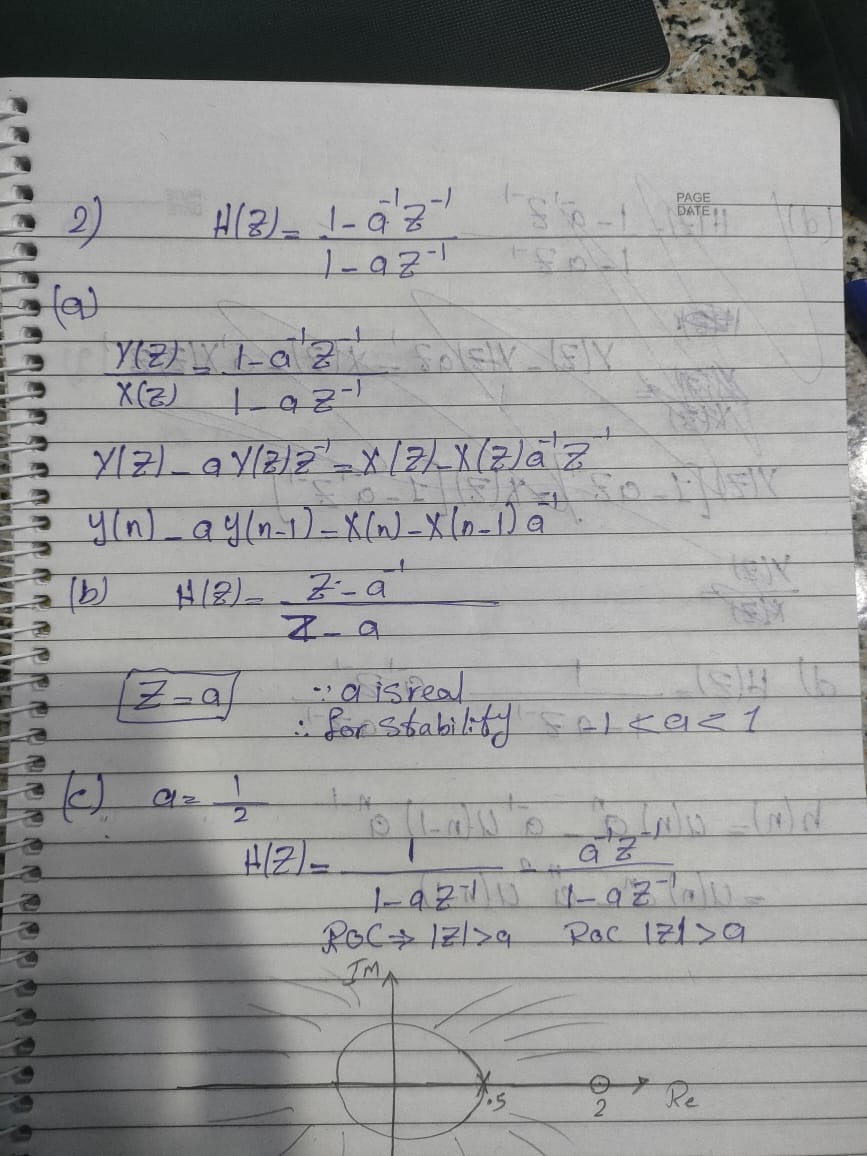 PAGE
DATE
2) H(Z) = (1 - a⁻¹ Z⁻¹) / (1 - a Z⁻¹)
(a)
Y(Z) / X(Z) = (1 - a⁻¹ Z⁻¹) / (1 - a Z⁻¹)
Y(Z) - a Y(Z) Z⁻¹ = X(Z) - X(Z) a⁻¹ Z⁻¹
y(n) - a y(n-1) = X(n) - X(n-1) a⁻¹
(b) H(Z) = (Z - a⁻¹) / (Z - a)
Z = a ∵ a is real
∴ for stability -1 < a < 1
(c) a = 1/2
H(Z) = 1 / (1 - a Z⁻¹) - a⁻¹ Z⁻¹ / (1 - a Z⁻¹)
ROC ⇒ |Z| > a ROC |Z| > a
IM
.5 2 Re